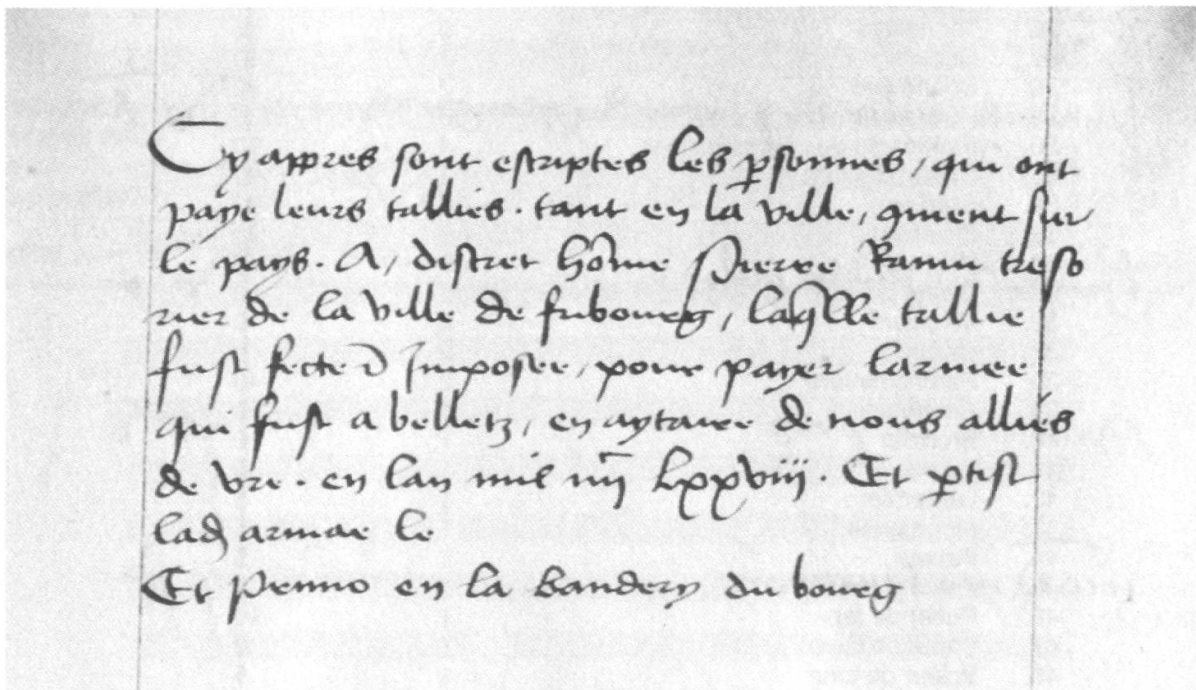 Cy appres sont escriptes les psonnes / qui ont
paye leurs tallies . tant en la ville / qment sur
le pays . A / discret home Pierre Ramu treso
rier de la ville de fribourg / laqlle tallie
fust fecte Imposee / pour payer larmee
qui fust a belletz / en aytaire de nous allies
de vre . en lan mil iiij lxxviij . Et ptist
lad armae le
Et Primo en la Bandery du bourg